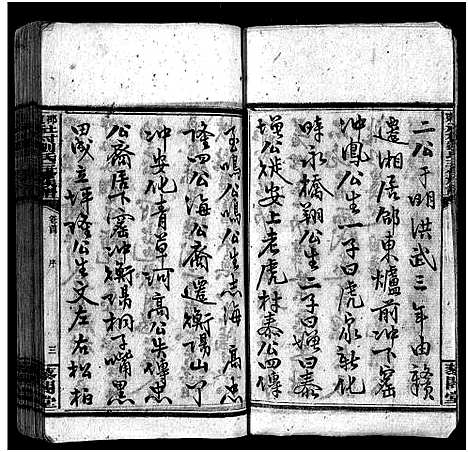 二公于明洪武三年由贛
遷湘居邵東爐前冲下窰
冲鳳公生一子曰虎家新化
時永橋翔公生二子曰嬗曰泰
增公徙安上老虎村泰公四傳
玉鳴公鳴公生志海 高忠
隆四公海公裔遷衡陽山門
冲安化青草河高公失傳忠
公裔居下窰冲衡陽桐子嘴黑
田成立坪隆公生文左右松柏
卷首 序 三